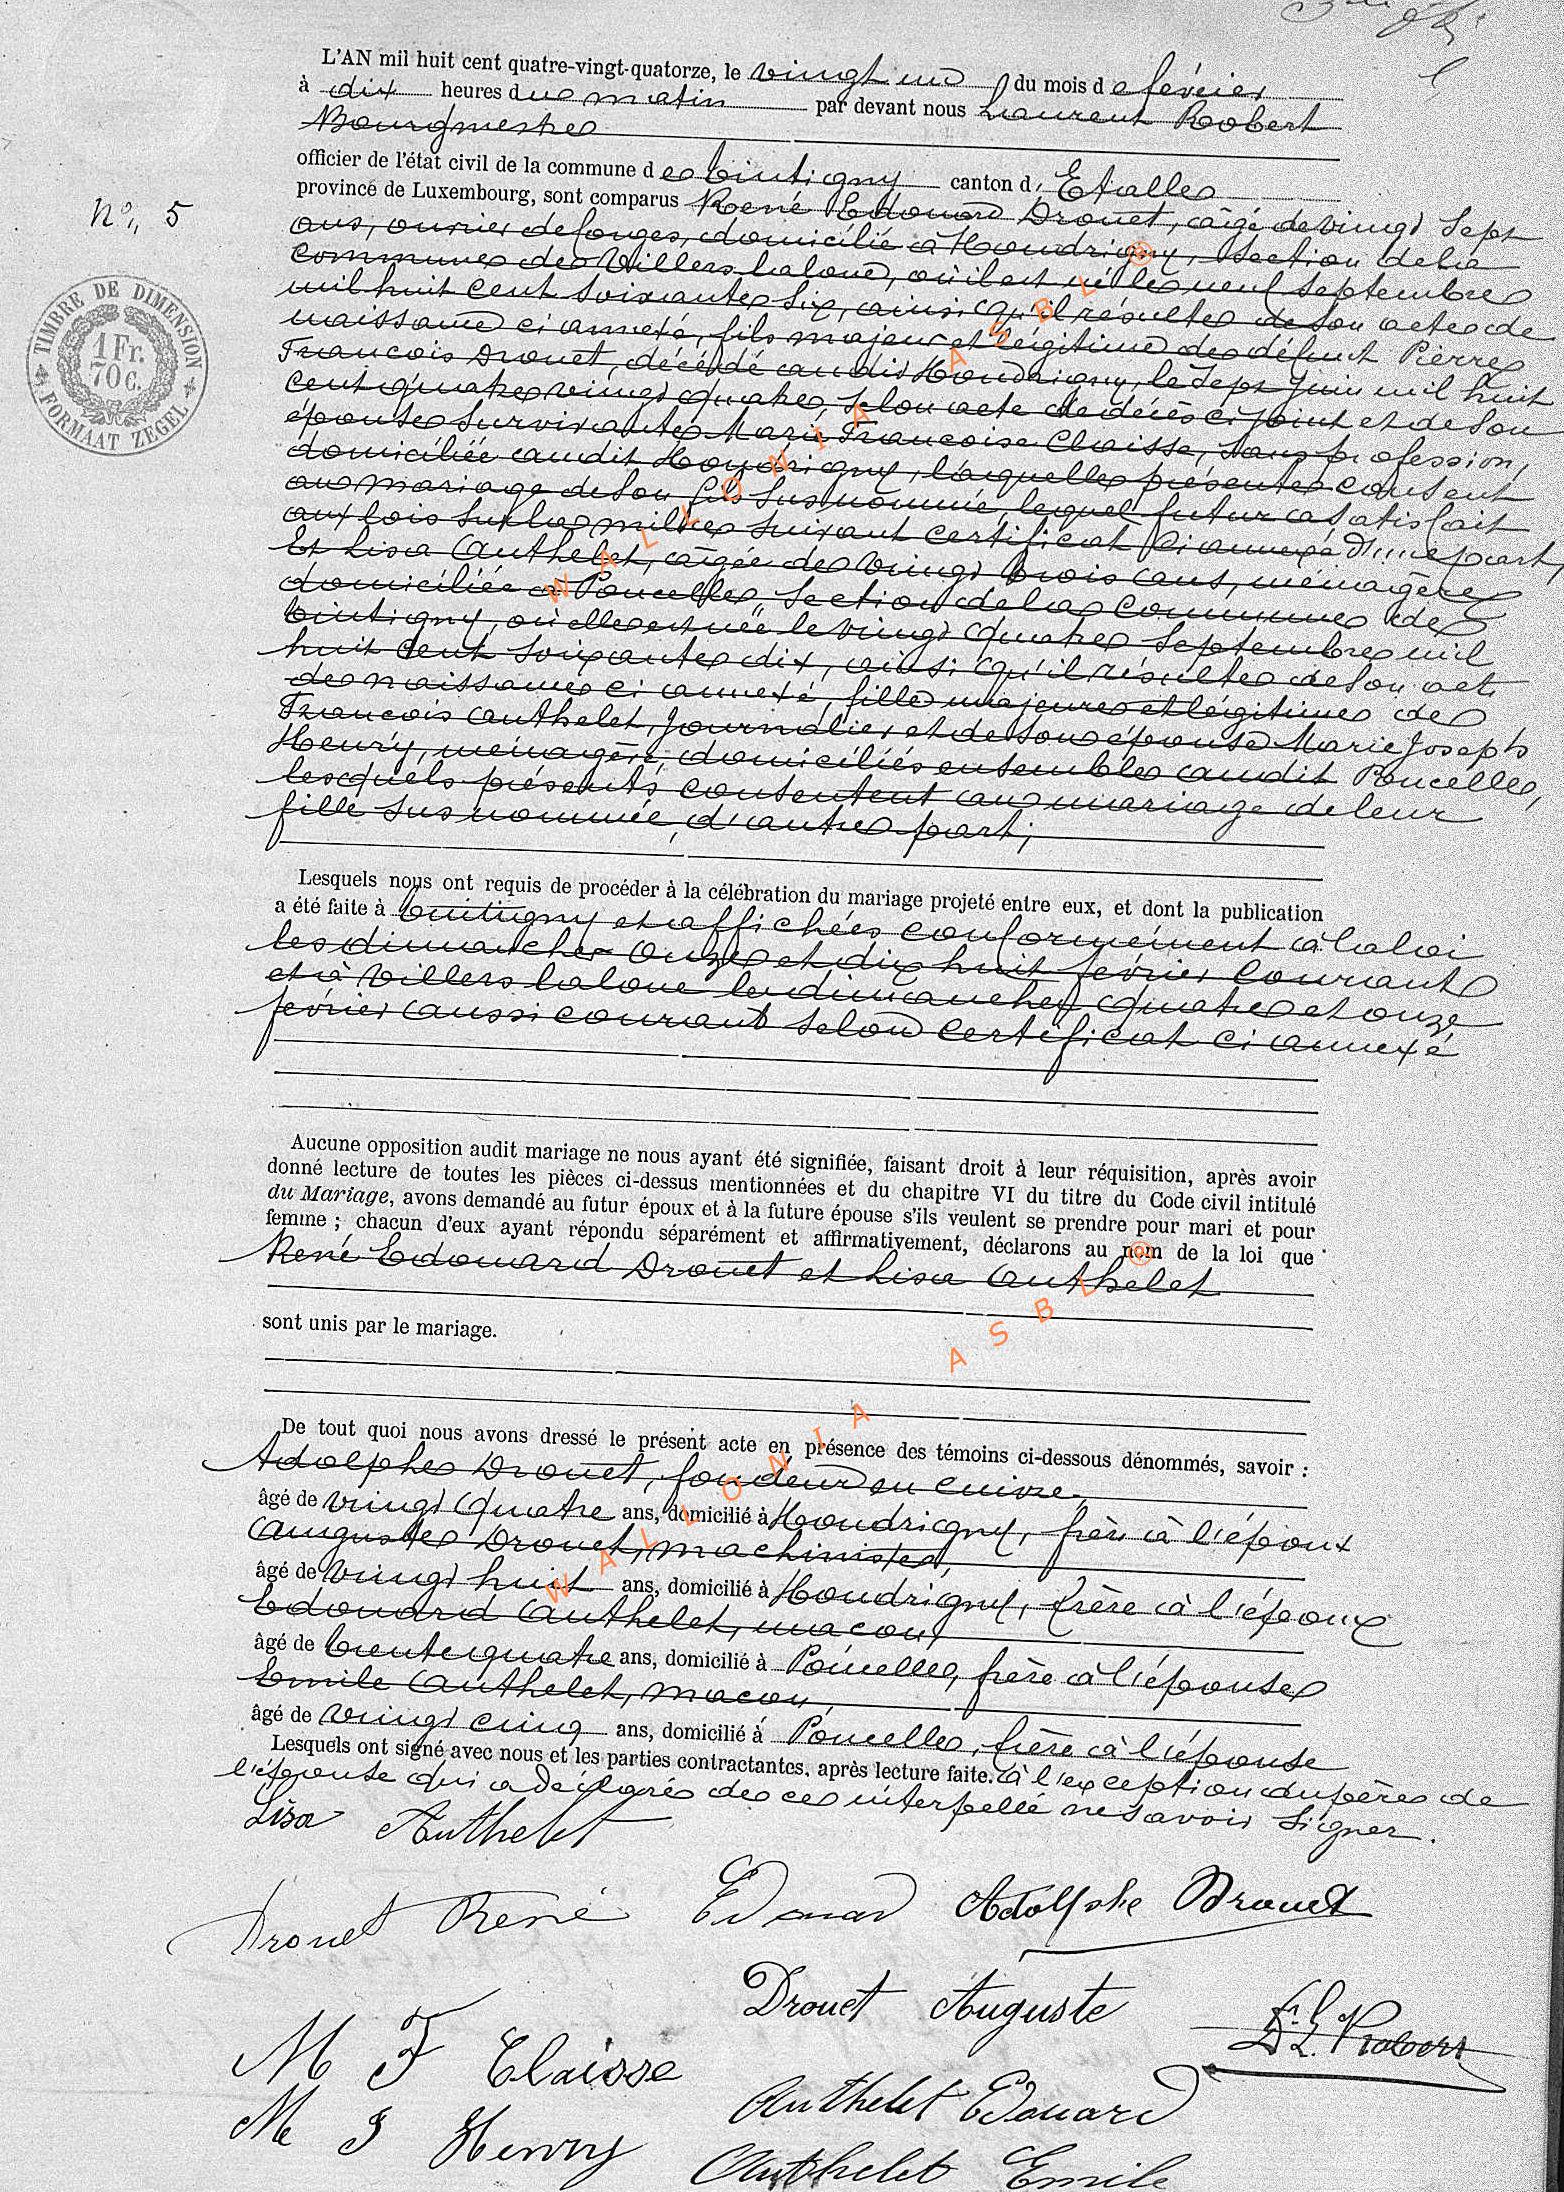 L'AN mil huit cent quatre-vingt-quatorze, le vingt un du mois de février
à dix heures du matin par devant nous Laurent Robert
Bourgmestre
officier de l'état civil de la commune de Tintigny canton d' Etalle
province de Luxembourg, sont comparus René Edouard Drouet, âgé de vingt sept
N° 5
ans, ouvrier de forges, domicilié à Houdrigny, section de la
commune de Villers la loue, où il est né le neuf septembre
mil huit cent soixante six, ainsi qu'il résulte de son acte de
naissance ci annexé, fils majeur et légitime de défunt Pierre
TIMBRE DE DIMENSION
1 Fr. 70 C.
FORMAAT ZEGEL
François Drouet, décédé audit Houdrigny, le sept juin mil huit
cent quatre vingt quatre, selon acte de décès ci joint et de son
épouse survivante Marie Françoise Claisse, sans profession,
domiciliée audit Houdrigny, laquelle présente consent
au mariage de son fils susnommé, lequel futur a satisfait
aux lois sur la milice suivant certificat ci annexé d'une part,
Et Lisa Authelet, âgée de vingt trois ans, ménagère
domiciliée à Poncelle, section de la commune de
Tintigny, où elle est née le vingt quatre septembre mil
huit cent soixante dix, ainsi qu'il résulte de son acte
de naissance ci annexé, fille majeure et légitime de
François Authelet, journalier et de son épouse Marie Joseph
Henry, ménagère, domiciliés ensemble audit Poncelle,
lesquels présents consentent au mariage de leur
fille susnommée, d'autre part;
Lesquels nous ont requis de procéder à la célébration du mariage projeté entre eux, et dont la publication
a été faite à Tintigny et affichées conformément à la loi
les dimanches onze et dix huit février courant
et à Villers la loue les dimanches quatre et onze
février aussi courant selon certificat ci annexé
Aucune opposition audit mariage ne nous ayant été signifiée, faisant droit à leur réquisition, après avoir
donné lecture de toutes les pièces ci-dessus mentionnées et du chapitre VI du titre du Code civil intitulé
du Mariage, avons demandé au futur époux et à la future épouse s'ils veulent se prendre pour mari et pour
femme ; chacun d'eux ayant répondu séparément et affirmativement, déclarons au nom de la loi que
René Edouard Drouet et Lisa Authelet
sont unis par le mariage.
De tout quoi nous avons dressé le présent acte en présence des témoins ci-dessous dénommés, savoir :
Adolphe Drouet, fondeur en cuivre,
âgé de vingt quatre ans, domicilié à Houdrigny, frère à l'époux
Auguste Drouet, machiniste,
âgé de vingt huit ans, domicilié à Houdrigny, frère à l'époux
Edouard Authelet, maçon,
âgé de trente quatre ans, domicilié à Poncelle, frère à l'épouse
Emile Authelet, maçon,
âgé de vingt cinq ans, domicilié à Poncelle, frère à l'épouse
Lesquels ont signé avec nous et les parties contractantes, après lecture faite. à l'exception du père de
l'épouse qui a déclaré de ce interpellé ne savoir signer.
Lisa Authelet
Drouet René Edouard Adolphe Drouet
Drouet Auguste
L. Robert
M F Claisse
M J Henry
Authelet Edouard
Authelet Emile
WALLONIA ASBL @
WALLONIA ASBL @